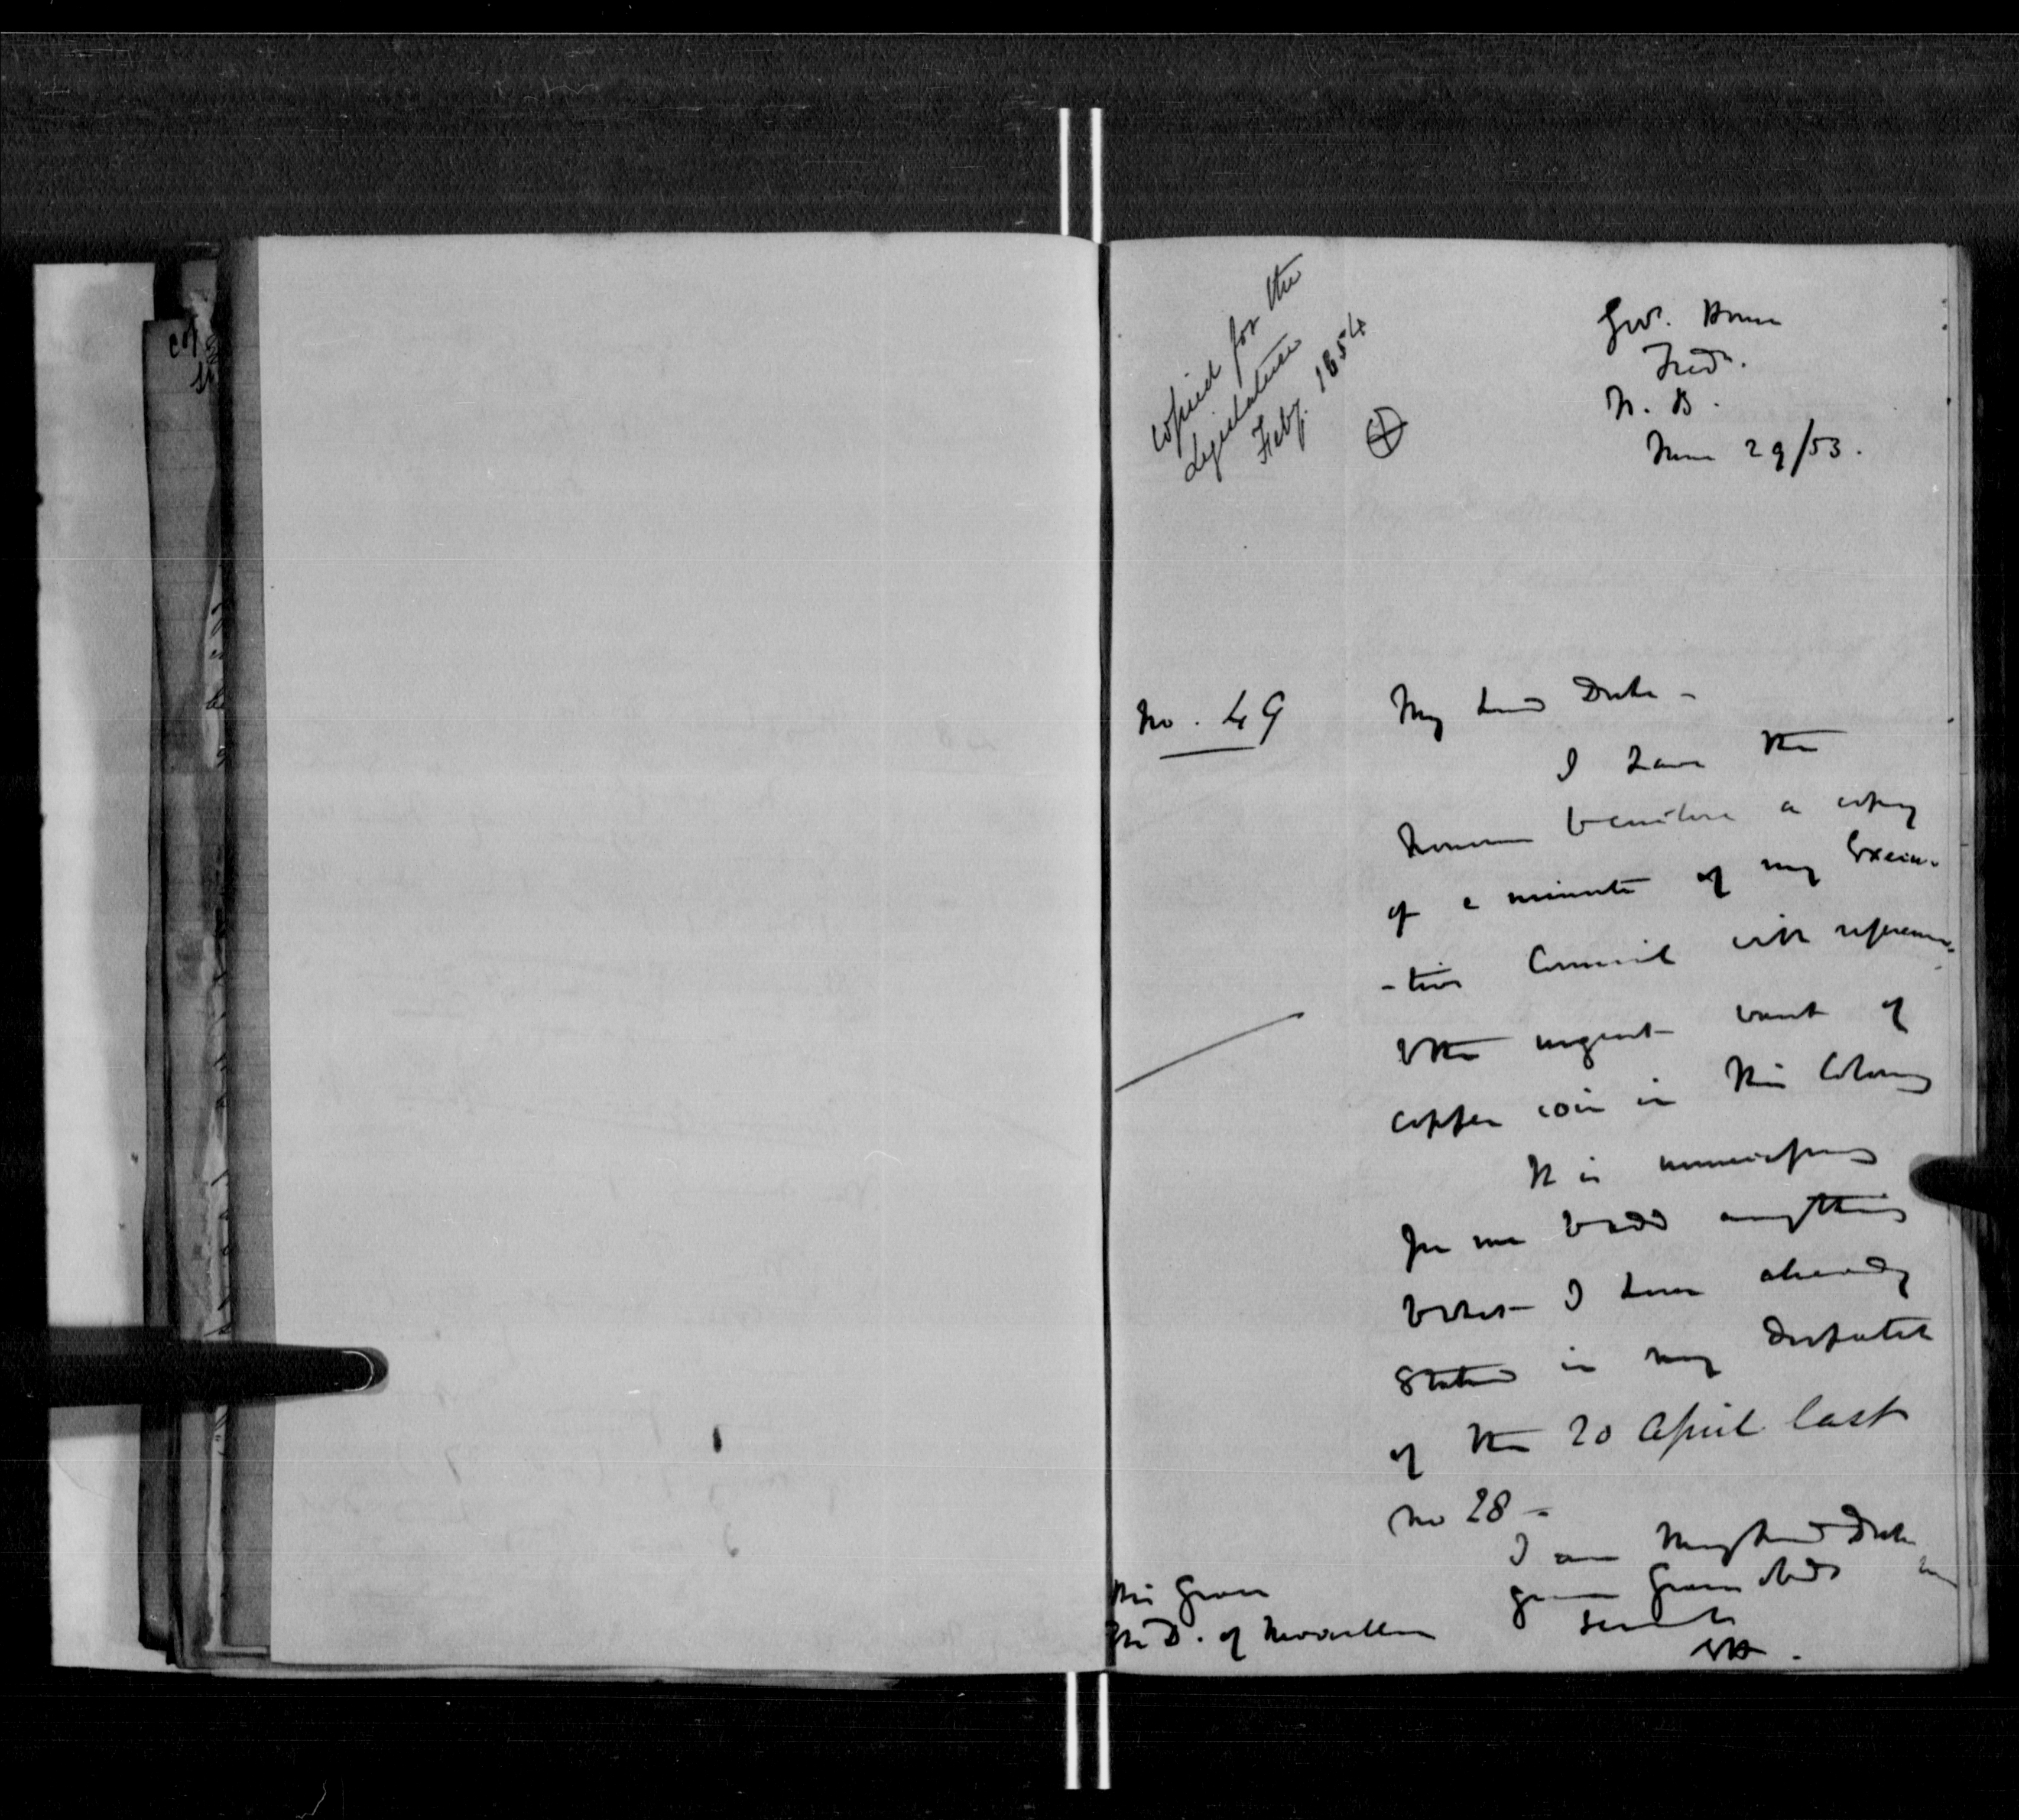 copied for the
Legislature
Feby. 1854
Govt. House
Fredn.
N. B.
June 29/53.
No. 49
My Lord Duke -
I have the
honour to enclose a copy
of a minute of my Execu-
-tive Council with reference
to the urgent want of
copper coin in this Colony
It is unnecessary
for me to add anything
to what I have already
stated in my Despatch
of the 20 April last
No 28 -
I am My Lord Duke
Grace's obdt
servt
His Grace
The D. of Newcastle